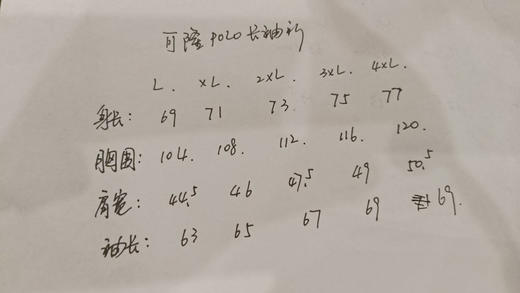 可隆POLO长袖衫
L. XL. 2XL. 3XL. 4XL.
身长: 69 71 73 75 77
胸围: 104. 108. 112. 116. 120.
肩宽: 44.5 46 47.5 49 50.5
袖长: 63 65 67 69 69.